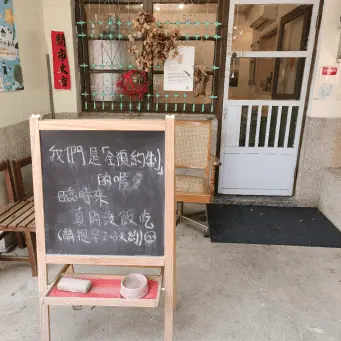 開市大吉
我們是「全預約制」
的喔!
臨時來
真的沒飯吃
(請提早2~3天約)